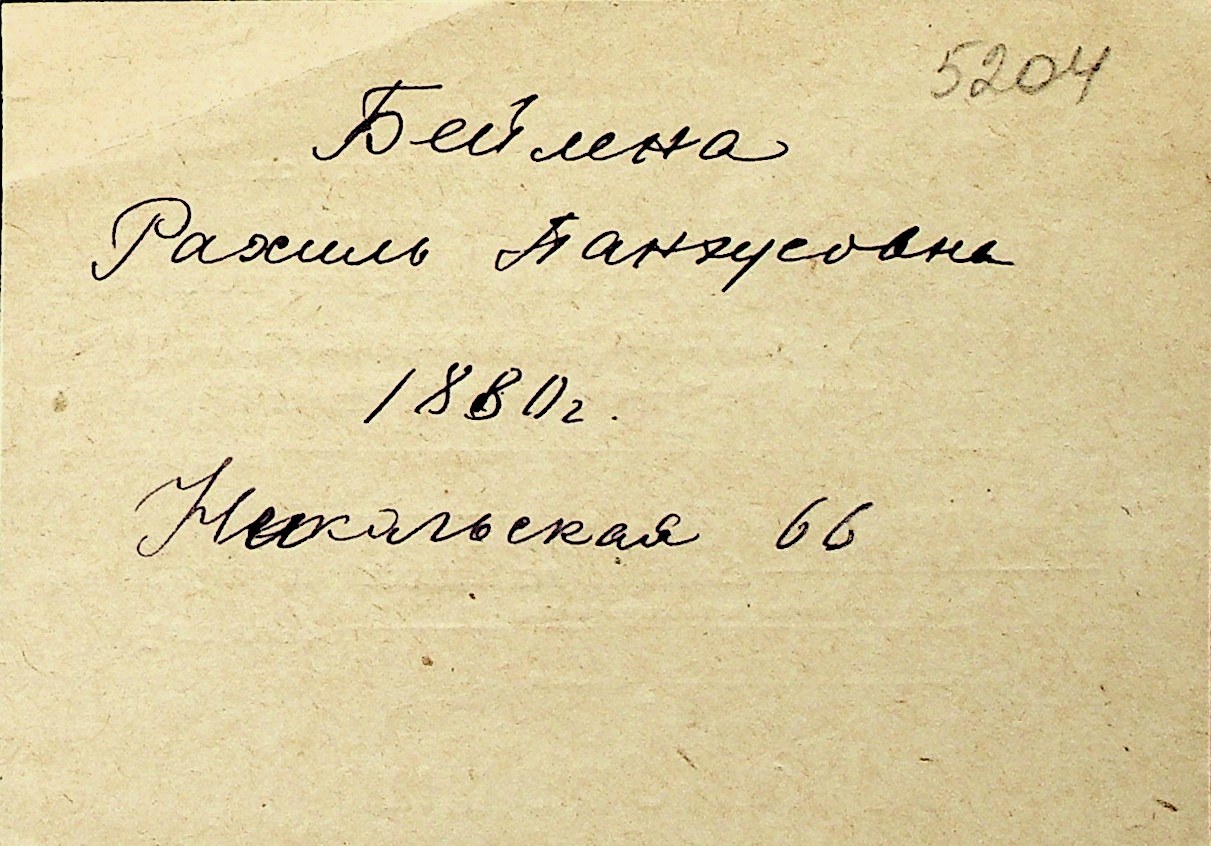 5204
Бейлена
Рахиль Панхусовна
1880г.
Никольская 66